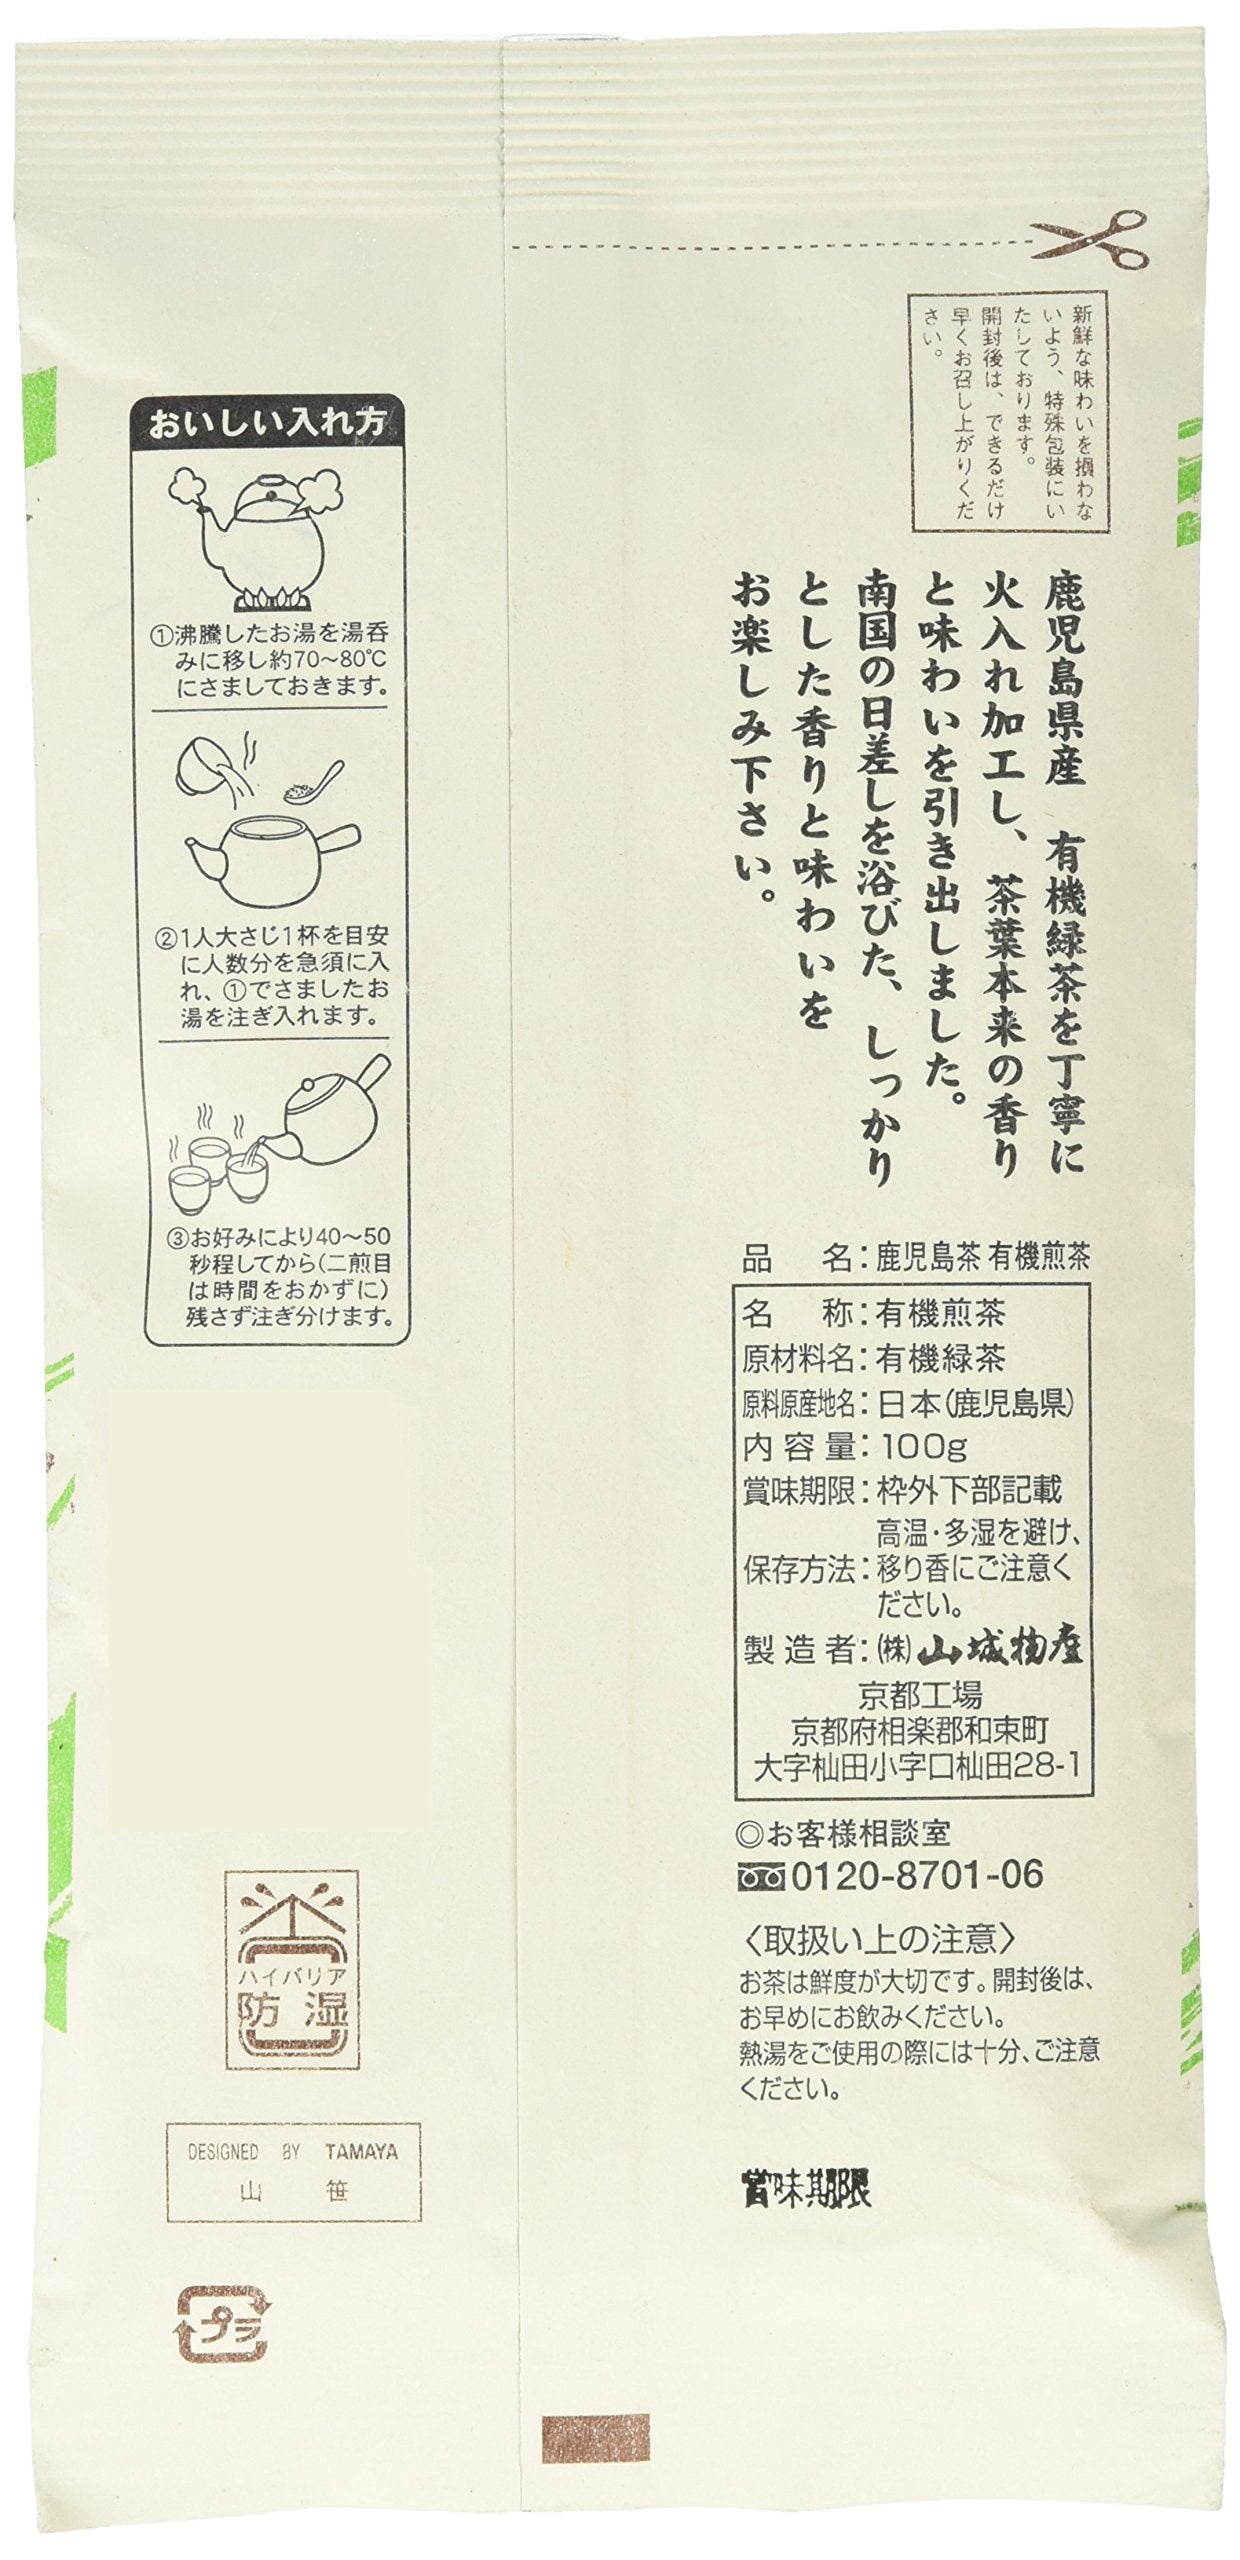 新鮮な味わいを損わな
いよう、特殊包装にい
たしております。
開封後は、できるだけ
早くお召し上がりくだ
さい。
鹿児島県産　有機緑茶を丁寧に
火入れ加工し、茶葉本来の香り
と味わいを引き出しました。
南国の日差しを浴びた、しっかり
とした香りと味わいを
お楽しみ下さい。
おいしい入れ方
①沸騰したお湯を湯呑
みに移し約70〜80℃
にさましておきます。
②1人大さじ1杯を目安
に人数分を急須に入
れ、①でさましたお
湯を注ぎ入れます。
③お好みにより40〜50
秒程してから(二煎目
は時間をおかずに)
残さず注ぎ分けます。
品　名：鹿児島茶 有機煎茶
名　称：有機煎茶
原材料名：有機緑茶
原料原産地名：日本(鹿児島県)
内容量：100g
賞味期限：枠外下部記載
保存方法：高温・多湿を避け、
移り香にご注意く
ださい。
製造者：(株)山城物産
京都工場
京都府相楽郡和束町
大字杣田小字口杣田28-1
◎お客様相談室
0120-8701-06
〈取扱い上の注意〉
お茶は鮮度が大切です。開封後は、
お早めにお飲みください。
熱湯をご使用の際には十分、ご注意
ください。
賞味期限
ハイバリア
防湿
DESIGNED BY TAMAYA
山　笹
プラ